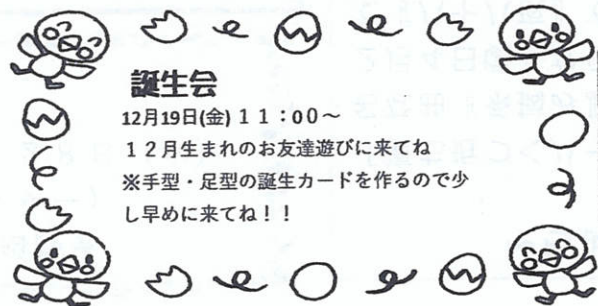 誕生会
12月19日(金) １１：００～
１２月生まれのお友達遊びに来てね
※手型・足型の誕生カードを作るので少
し早めに来てね！！